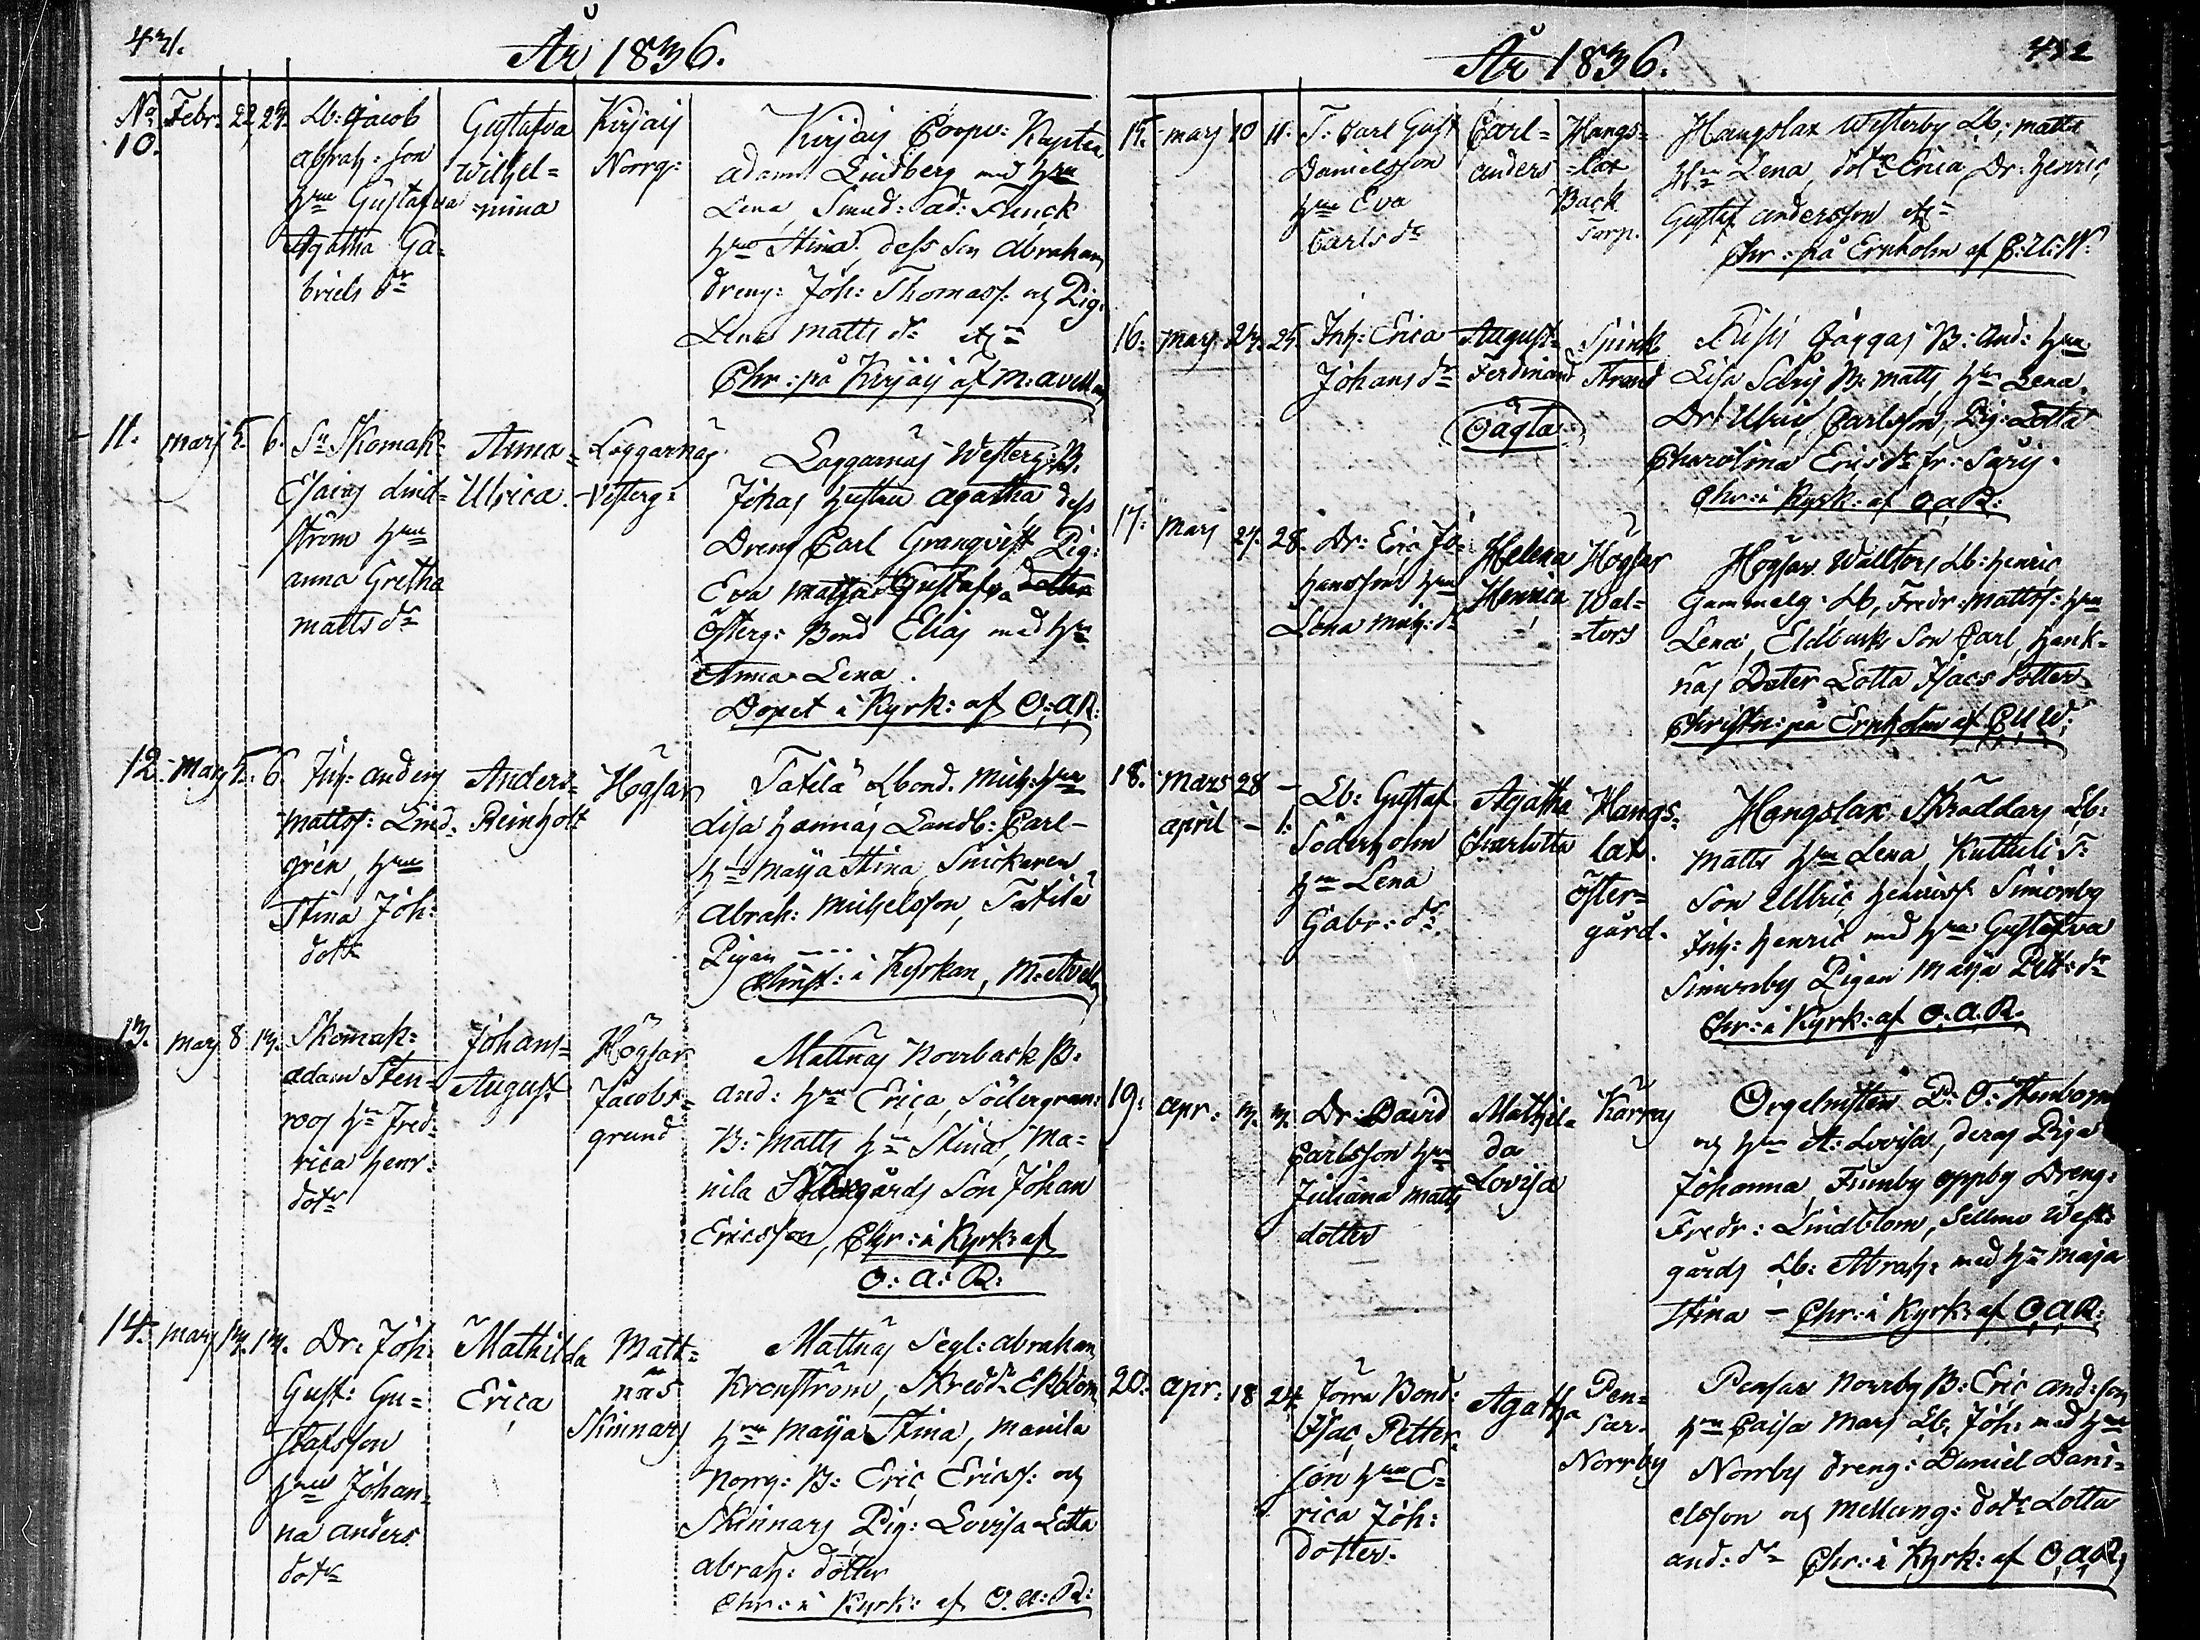 431.
År 1836.
No 10. Febr. 22 24. Lb: Jacob
Abrah: son
hru Gustafva
Agatha Ga=
briels dr
Gustafva
Wilhel=
=mina
Kirjais
Norrg:
Kirjais Corpr: Kapten
Adam Lindberg med hru
Lena, Smed: Ad: Funck
hru Stina, dess Son Abraham
dreng: Joh: Thomass: och Pig:
Lena Matts dr etc
Chr: på Kirjais af M: Avellan
11. Mars 5. 6. Sn Skomak:
Esaias Lind=
ström hru
Anna Gretha
Matts dr
Anna=
Ulrica.
Laggarnäs
Vesterg:
Laggarnäs Westerg: B.
Johas hustru Agatha dess
Dreng Carl Granqvist Pig:
Eva Gustafva
Österg: Bond Elias med hru
Anna Lena.
Döpet i Kyrk: af O: A R:
12. Mars 5. 6. Inh: Anders
Mattss: Lind=
grén, hru
Stina Joh:
dotr
Anders=
Reinholt
Högsar
Tatila Lbond. Mich: hru
Lisa Hannäs Landb: Carl
hru Maija Stina, Snickaren
Abrah: Michelsson, Tatila
Pigan ....
Christ: i Kyrkan, M: Avell
13. Mars 8 13. Skomak:
Adam Sten=
roos hru Fred=
rica Henr:
dotr
Johans=
August
Högsar
Jacobs=
grund
Mattnäs Norrback B:
And: hru Erica, Södergran:
B: Matts hru Stina, Ma=
nila Son Johan
Ericsson, Chr: i Kyrk: af
O: A: R:
14. Mars 13. 13. Dr: Joh:
Gust: Gu=
stafsson
hru Johan=
na Anders
dotr
Mathilda
Erica
Matt=
näs
Skinnars
Mattnäs Segl: Abraham
Kronström, Skredd: Ekblom
hru Maija Stina, Manila
Norrg: B: Eric Ericss: och
Skinnars Pig: Lovisa Lotta
Abrah: dotter
Chr: i Kyrk: af O. A: R:
År 1836.
432
15. Mars 10 11. T: Carl Gust
Danielsson
hru Eva
Carls dr
Carl=
Anders
Hangs=
=lax
Back
Torp.
Hangslax Westerby Lb: Matts
hru Lena, dotr Erica, Dr: Henric
Gustaf Andersson etc
Chr: på Ernholm af C: U: W.
16. Mars 24. 25. Inh: Erica
Johans dr
August
Ferdinand
Oägta
Spink
Strand
Jäggas B: And: hru
Lisa Sorris B: Matts hru Lena.
Dr: Ulric Carlsson, Pig: Lotta
Charolina Erics dr fr: Sorris.
Chr: i Kyrk: af O. A. R:
17. Mars 27. 28. Dr: Eric Jo=
hansson hru
Lena Mich: dr
Helena
Henrica
Högsar
Wal=
=tors
Högsar Walltors Lb: Henric
Gammelg: Lb, Fredr: Mattss: hru
Lena, Eldbusk Son Carl, Hank=
näs Doter Lotta Isacs dotter
Christn: på Ernholm af C U W.
18. Mars 28 –
April – 1. Lb: Gustaf
Söderholm
hru Lena
Gabr: dr
Agatha
Charlotta
Hangs=
lax.
Öster=
gård.
Hangslax Skräddars Lb:
Matts hru Lena, Kuttuli T:
Son Ullric Henricss: Simonby
Inh: Henric med hru Gustafva
Simonby Pigan Maija Pett: dr
Chr: i Kyrk: af O. A. R.
19. Apr: 3. 3. Dr: David
Carlsson hru
Juliana Matts
dotter
Mathil=
da
Lovisa
Kärras
Orgelnisten P: O:
och hru A: Lovisa, deras Piga
Johanna, Finnby Oppby Dreng:
Fredr: Lindblom, Sellmo West:
gårds Lb: Abrah: med hru Maja
Stina – Chr: i Kyrk: af O A R:
20. Apr: 18 24 Förra Bond:
Isac Petter
son hru E=
rica Joh:
dotter.
Agatha
Pen=
sar.
Norrby
Pensar Norrby B: Eric And: son
hru Caisa Mars Lb, Joh: med hru
Norrby dreng: Daniel Dani=
elsson och Mellang: dotr Lotta
And: dr Chr: i Kyrk: af O A R,